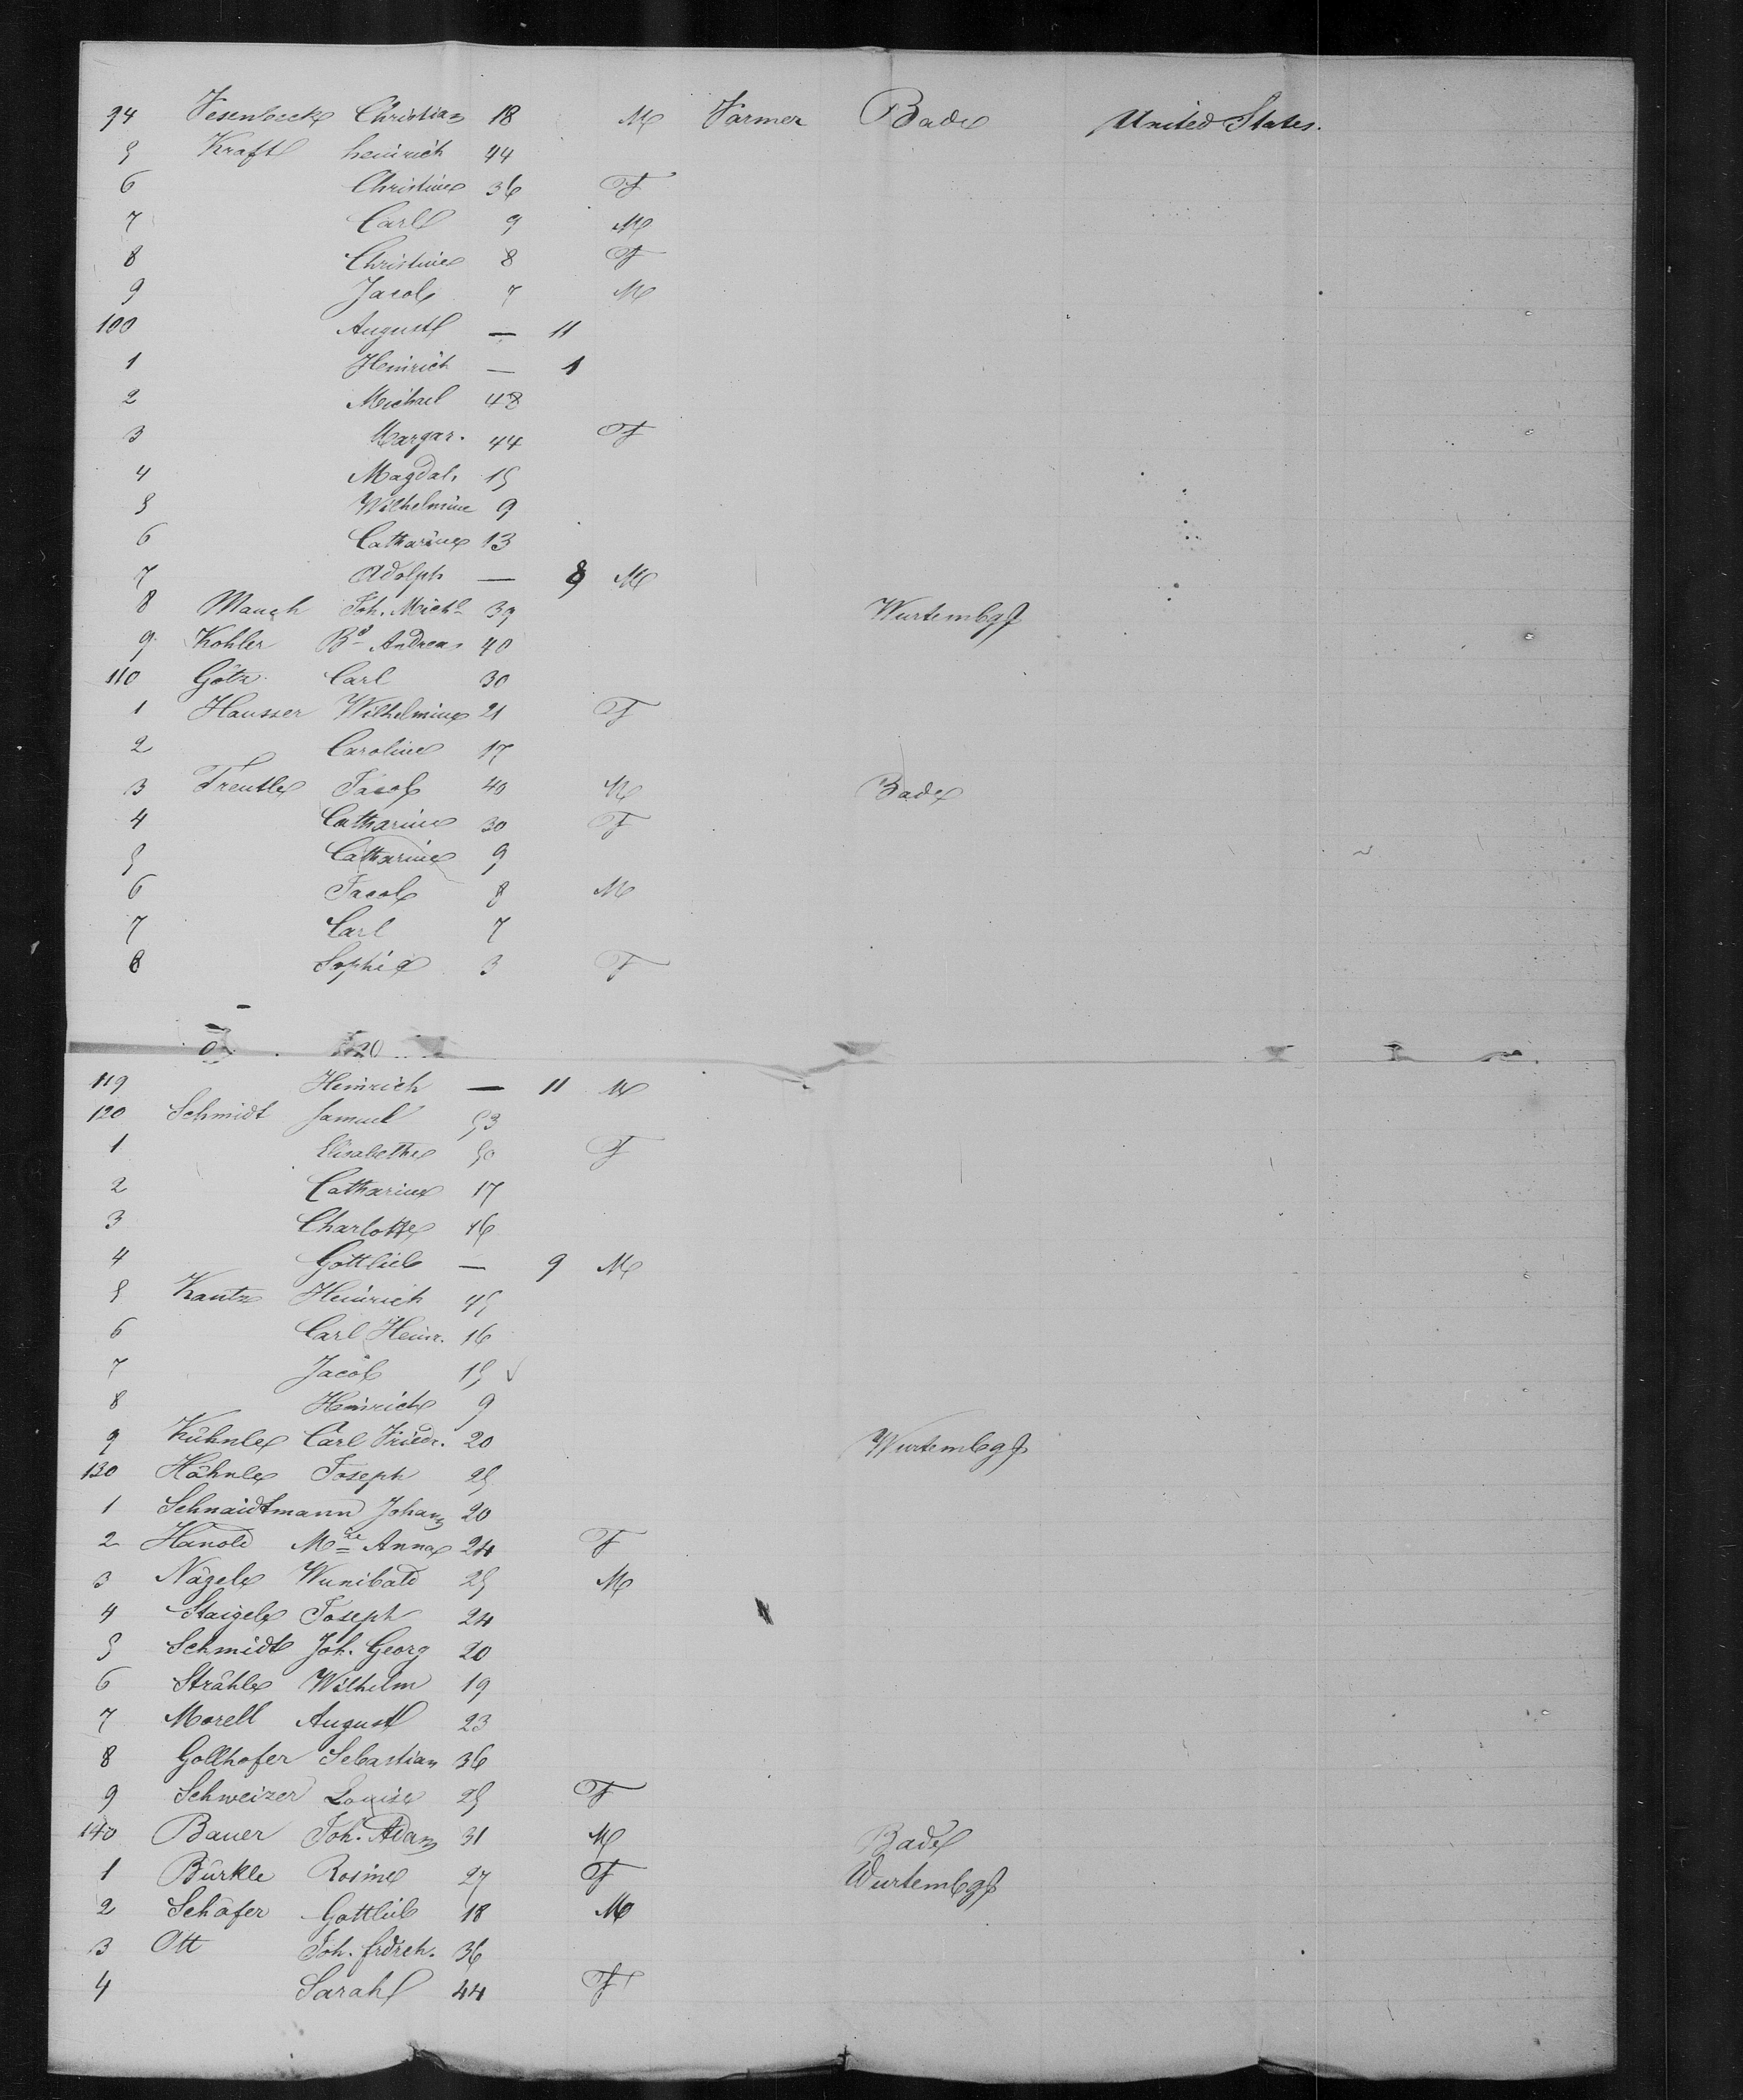 94 Vesenbeck Christian 18 M Farmer Bade United States.
5 Kraft heinrich 44
6 Christine 36 F
7 Carl 9 M
8 Christine 8 F
9 Jacob 7 M
100 August — 11
1 Heinrich — 1
2 Michael 48
3 Margar. 44 F
4 Magdal. 15
5 Wilhelmine 9
6 Catharine 13
7 Adolph — 9 M
8 Mauch Joh. Michl 39 Wurtembg
9 Kohler Bd Andreas 40
110 Götz Carl 30
1 Hausser Wilhelmine 21 F
2 Caroline 17
3 Treutle Jacob 40 M Bade
4 Catharine 30 F
5 Catharine 9
6 Jacob 8 M
7 Carl 7
8 Sophie 3 F
119 Heinrich — 11 M
120 Schmidt Samuel 53
1 Elisabethe 50 F
2 Catharine 17
3 Charlotte 16
4 Gottlieb — 9 M
5 Kautz Heinrich 45
6 Carl Heinr. 16
7 Jacob 15
8 Heinrich 9
9 Kühnle Carl Friedr. 20 Wurtembg
130 Hähnle Joseph 25
1 Schnaidtmann Johann 20
2 Hanold Mie Anna 24 F
3 Nägele Wunibald 25 M
4 Staigele Joseph 24
5 Schmidt Joh. Georg 20
6 Strähle Wilhelm 19
7 Morell August 23
8 Gollhofer Sebastian 36
9 Schweizer Louise 25 F
140 Bauer Joh. Adam 31 M Bade
1 Bürkle Rosine 27 F Wurtembg
2 Schäfer Gottlieb 18 M
3 Ott Joh. frdrch. 36
4 Sarah 44 F